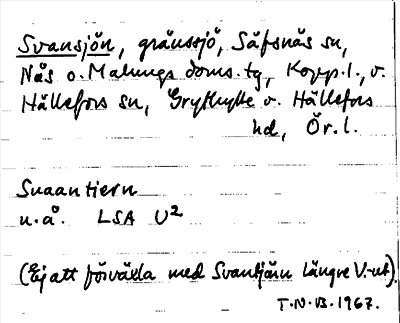 Svansjön, gränssjö, Säfsnäs sn,
Nås o. Malungs doms. tg, Kopp. l., o.
Hällefors sn, Grythytte o. Hällefors
hd, Ör. l.
Suaantiern
u.å. LSA U²
(Ej att förväxla med Svantjärn längre V. ut).
T.N.B. 1967.